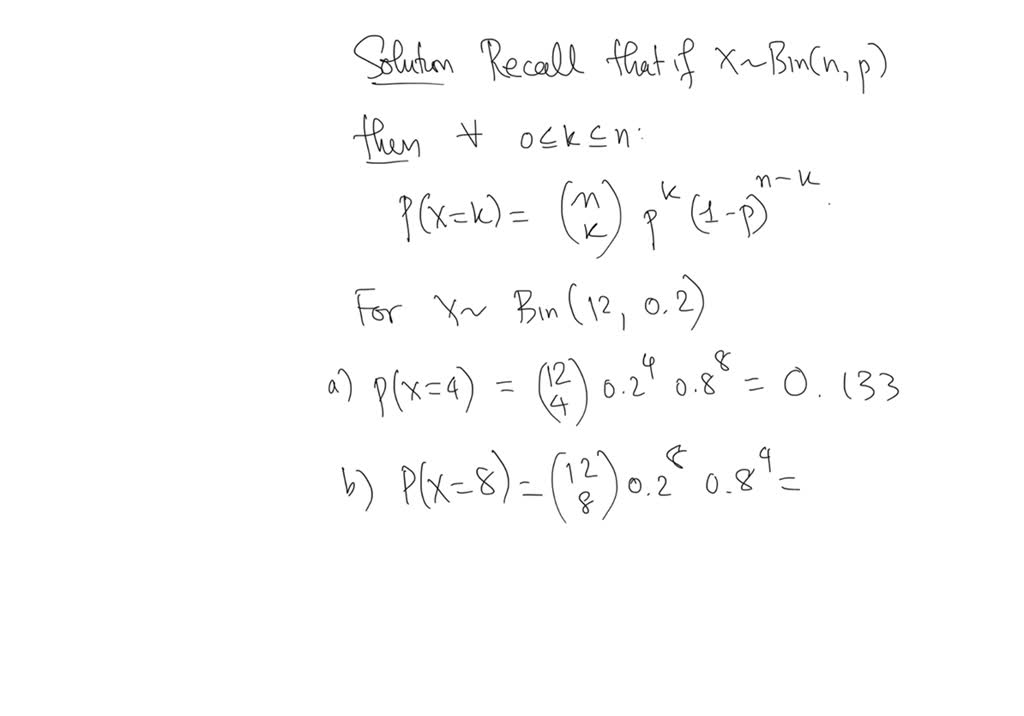 Solution Recall that if X~Bin(n, p)
then ∀ 0≤k≤n:
P(X=k) = (n k) p^k (1-p)^{n-k}.
For X~ Bin(12, 0.2)
a) P(X=4) = (12 4) 0.2^4 0.8^8 = 0.133
b) P(X=8) = (12 8) 0.2^8 0.8^4 =